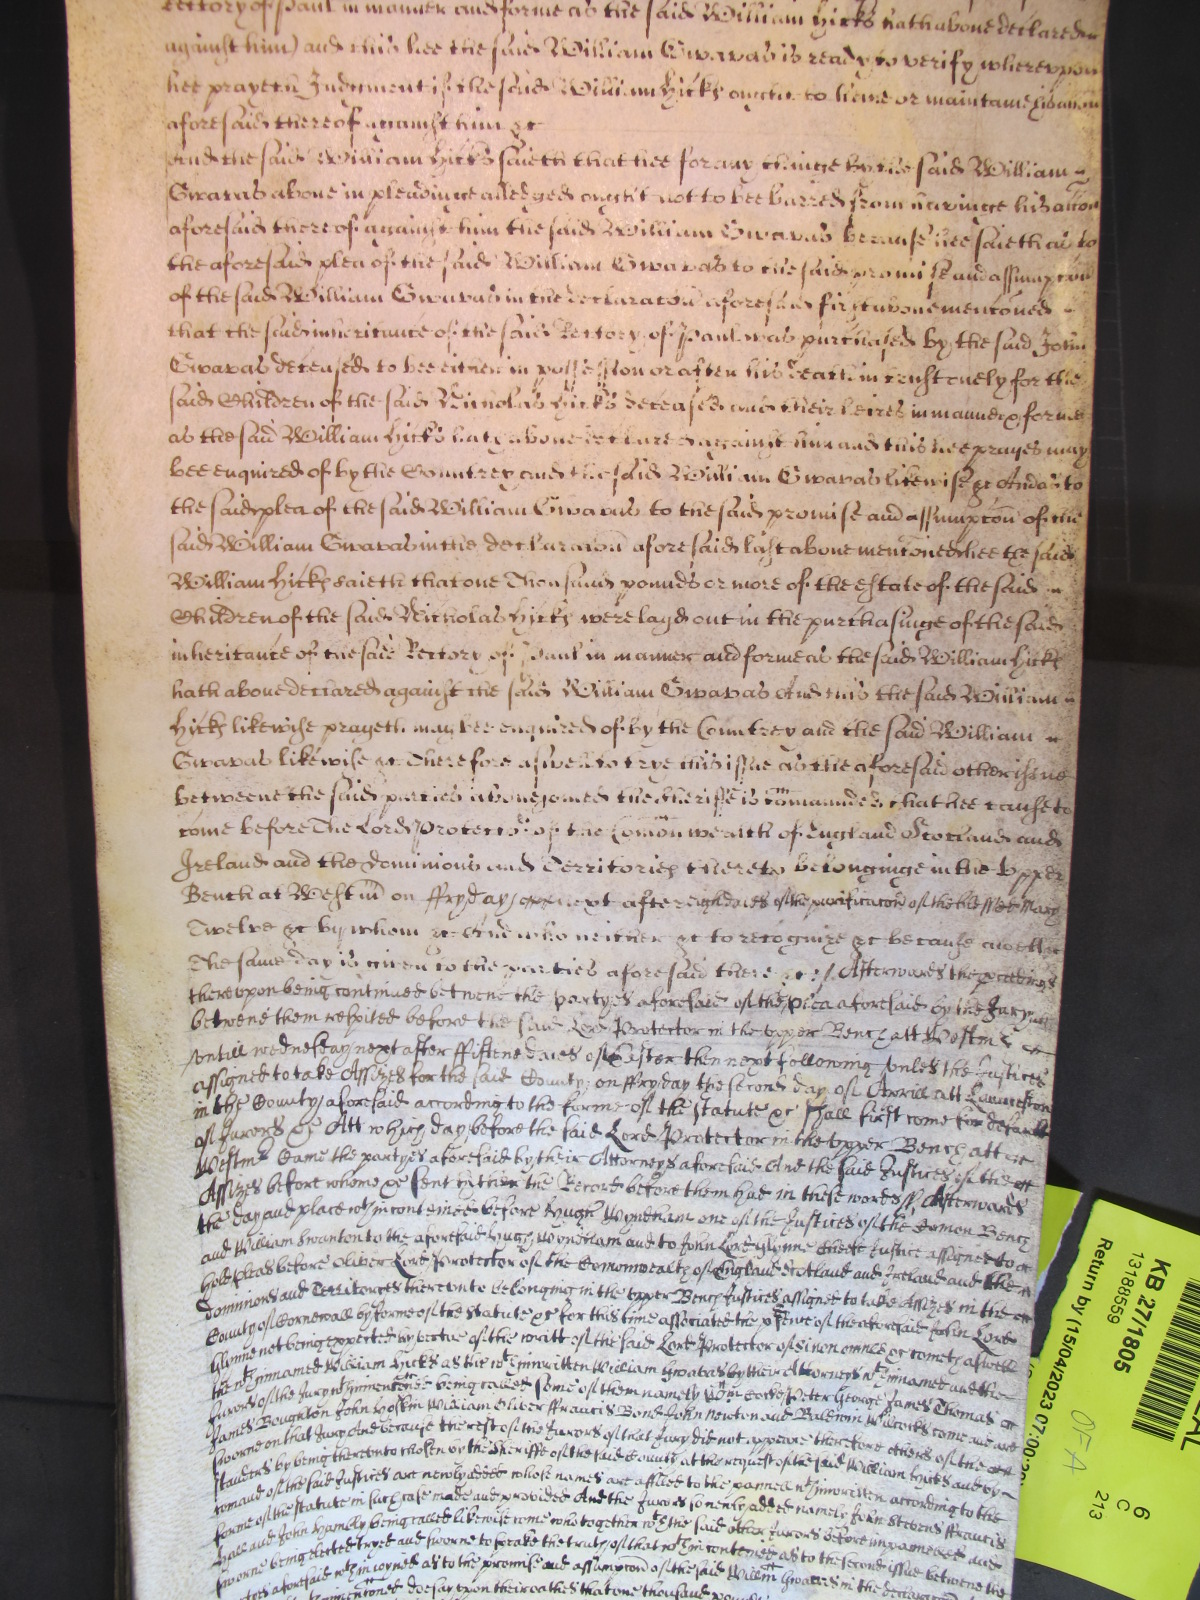 Rectory of Paul in manner and forme as the said William Hicks hath above declared
against him) and this hee the said William Gwavas is ready to verify wherevpon
hee prayeth Judgment if the said William Hicks ought to have or maintaine his action
aforesaid thereof against him &c
And the said William Hicks saieth that hee for any thinge by the said William
Gwavas above in pleadinge alledged ought not to bee barred from havinge his accon
aforesaid thereof against him the said William Gwavas because hee saieth as to
the aforesaid plea of the said William Gwavas to the said promise and assumpcon
of the said William Gwavas in the declaracon aforesaid first above menconed
that the said inheritance of the said Rectory of Paul was purchased by the said John
Gwavas deceased to bee either in possession or after his death in trust onely for the
said Children of the said Nicholas Hicks deceased and their heires in manner & forme
as the said William Hicks hath above declared against him and this hee prayes may
bee enquired of by the Countrey and the said William Gwavas likewise &c And as to
the said plea of the said William Gwavas to the said promise and assumpcon of the
said William Gwavas in the declaracon aforesaid last above menconed hee the said
William Hicks saieth that one Thousand pounds or more of the estate of the said
Children of the said Nicholas Hicks were layd out in the purchasinge of the said
inheritance of the said Rectory of Paul in manner and forme as the said William Hicks
hath above declared against the said William Gwavas And this the said William
Hicks likewise prayeth may bee enquired of by the Countrey and the said William
Gwavas likewise &c Therefore aswell to trye this issue as the aforesaid other issue
betweene the said parties above joyned the Sheriffe is comaunded that hee cause to
come before The Lord Protector of the Comonwealth of England Scotland and
Ireland and the dominions and Territories thereto belonginge in the Vpper
Bench at Westm on ffryday next after eight daies of the purificacon of the blessed Mary
Twelve &c by whom &c And who neither &c to recognize &c because aswell &c
The same day is given to the parties aforesaid there &c // Afterwards the proceedings
therevpon being continued betwene the partyes aforesaid of the plea aforesaid by the Jury
betwene them respited before the said Lord Protector in the vpper Bench att Westm
vntill wednesday next after ffiftene daies of Easter then next following vnles the Justices
assigned to take Assizes for the said County on ffryday the second day of Aprill att Launceston
in the County aforesaid according to the forme of the statute &c shall first come for default
of Jurors &c Att which day before the said Lord Protector in the vpper Bench att
Westm Came the partyes aforesaid by their Attorneys aforesaid And the said Justices of the
Assizes before whome &c sent hither the Record before them had in these words // Afterwards
the day and place wthin conteined before Hugh Wyndham one of the Justices of the Comon Bench
and William Swanton to the aforesaid Hugh Wyndham and to John Lord Glynne cheife Justice assigned to
hold pleas before Oliver Lord Protector of the Comonwealth of England Scotland and Ireland and the
dominions and Territories therevnto belonging in the vpper Bench Justices assigned to take Assizes in the
County of Cornewall by forme of the statute &c for this time associated the psence of the aforesaid John Lord
Glynne not being expected by vertue of the writt of the said Lord Protector of si non omnes &c cometh aswell
the wthinnamed William Hicks as the wthinwritten William Gwavas by their Attorneys wthinnamed and the
Jurors of the Jury wthinmenconed being called some of them namely Peter George James Thomas
James Boughton John Hoskin William Oliver ffrancis Bond John Newton and Baldwin Willcocks come and are
sworne on that Jury And because the rest of the Jurors of that Jury did not appeare therefore others of the
standers by being therevnto chosen by the Sheriffe of the said County at the request of the said William Hicks and by
comaund of the said Justices are newly added whose names are affiled to the pannell wthinwritten according to the
forme of the statute in such case made and provided And the Jurors so newly added namely John Stevens ffrancis
Hall and John Hamlly being called likewise come who together wth the said other Jurors before impanelled and
sworne being elected tryed and sworne to speake the truth of that wthin conteined as to the second issue betwene the
partes aforesaid wthin joyned as to the promise and assumpcon of the said Willm Gwavas in the declaracon
menconed doe say vpon their oathes that one thousand pounds
KB 27/1805
13188559
Return by (15/04/2023 07:00:
OFA
6
C
213